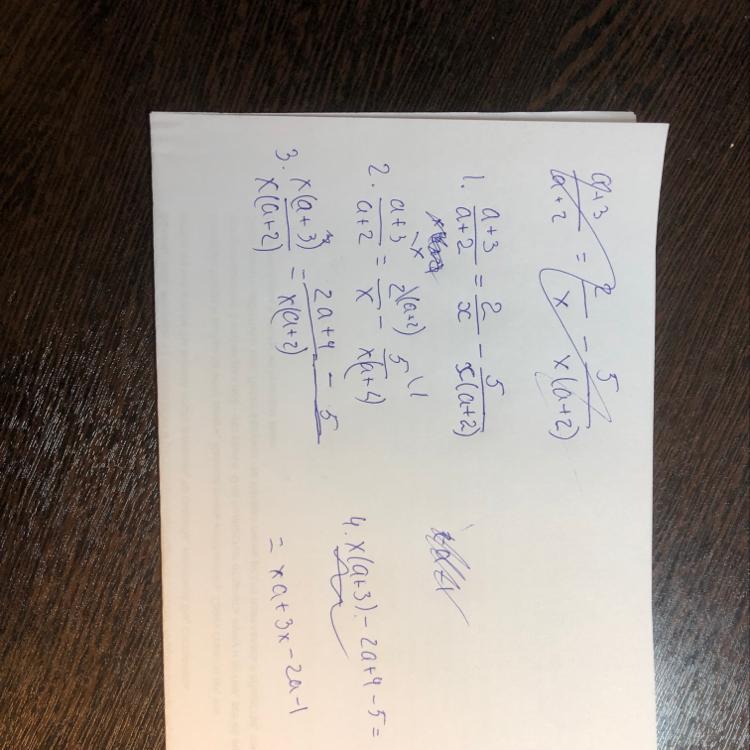 a+3/a+2 = 2/x - 5/x(a+2)
1. a+3/a+2 = 2/x - 5/x(a+2)
2. a+3\x/a+2 = 2\(a+2)/x - 5\1/x(a+2)
3. x(a+3)/x(a+2) = 2a+4-5/x(a+2)
4. x(a+3) - 2a+4-5=
= xa+3x-2a-1